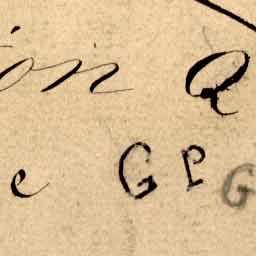 ion Q
e GPG